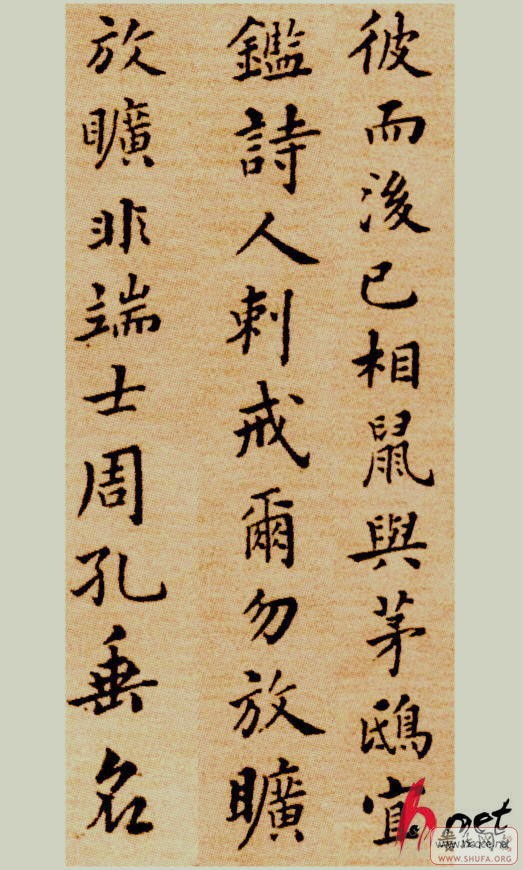 彼而後已相鼠與茅鴟宜
鑑詩人刺戒爾勿放矌
放矌非端士周孔垂名
WWW.SHUFA.ORG